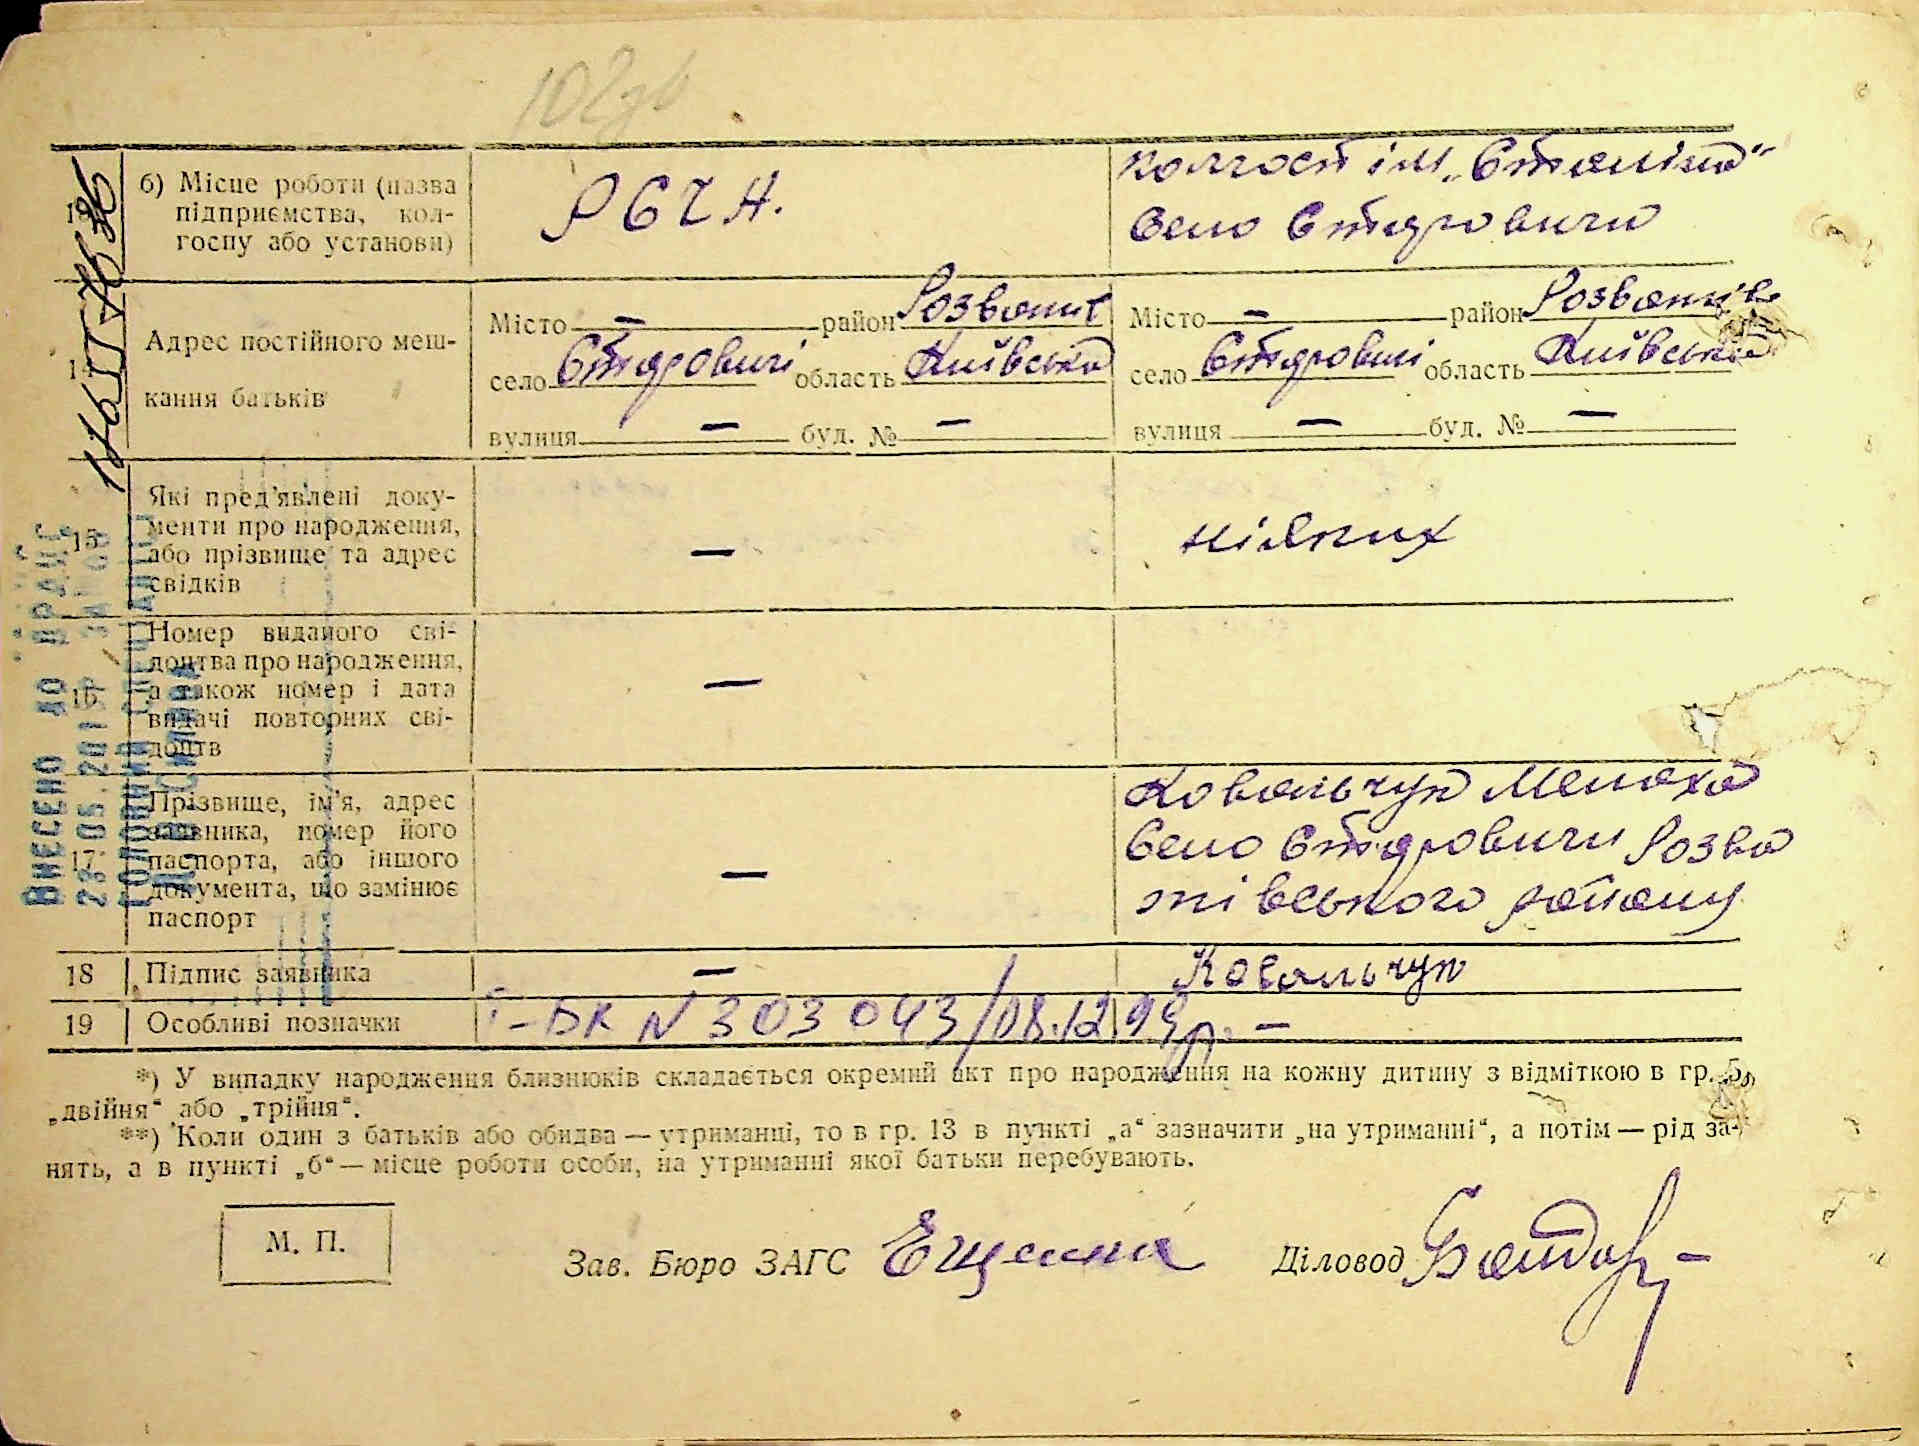 102зв
б) Місце роботи (назва
підприємства, кол-
госпу або установи)
РСЧА.
колгосп ім. „Сталіна“
село Стдровичи
14
Адрес постійного меш-
кання батьків
Місто — район Розважів
село Стдровичі область Київська
вулиця — буд. № —
Місто — район Розважів
село Стдровичі область Київська
вулиця — буд. № —
15
Які пред'явлені доку-
менти про народження,
або прізвище та адрес
свідків
—
ніяких
16
Номер виданого сві-
доцтва про народження,
а також номер і дата
видачі повторних сві-
доцтв
—
17
Прізвище, ім'я, адрес
заявника, номер його
паспорта, або іншого
документа, що замінює
паспорт
—
Ковальчук Мелаха
село Стдровичи Розва
жівського району
18 Підпис заявника — Ковальчук
19 Особливі позначки І-БК N 303043/08.12.99р. —
*) У випадку народження близнюків складається окремий акт про народження на кожну дитину з відміткою в гр. 5,
„двійня“ або „трійня“.
**) Коли один з батьків або обидва — утриманці, то в гр. 13 в пункті „а“ зазначити „на утриманні“, а потім — рід за-
нять, а в пункті „б“ — місце роботи особи, на утриманні якої батьки перебувають.
М. П.
Зав. Бюро ЗАГС Ещенка Діловод
ВНЕСЕНО ДО ДРАЦС
ГОЛОВНИЙ СПЕЦІАЛІСТ